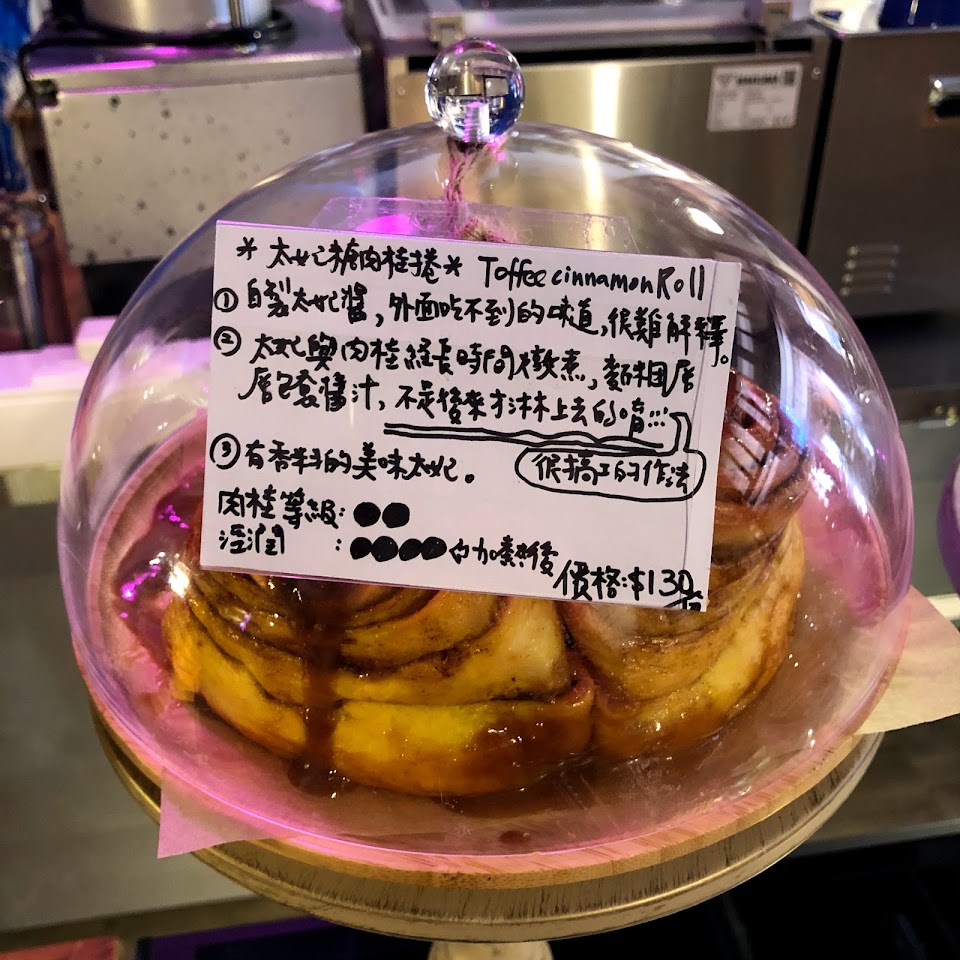 * 太妃糖肉桂捲 * Toffee cinnamon Roll
① 自製太妃醬,外面吃不到的味道,很難解釋。
② 太妃與肉桂經長時間燉煮,麵糰層
層包裹醬汁,不是後來才淋上去的唷…
很搞工的作法
③ 有香料的美味太妃。
肉桂等級:●●
溼潤 :●●●● 加熱後
價格:$130